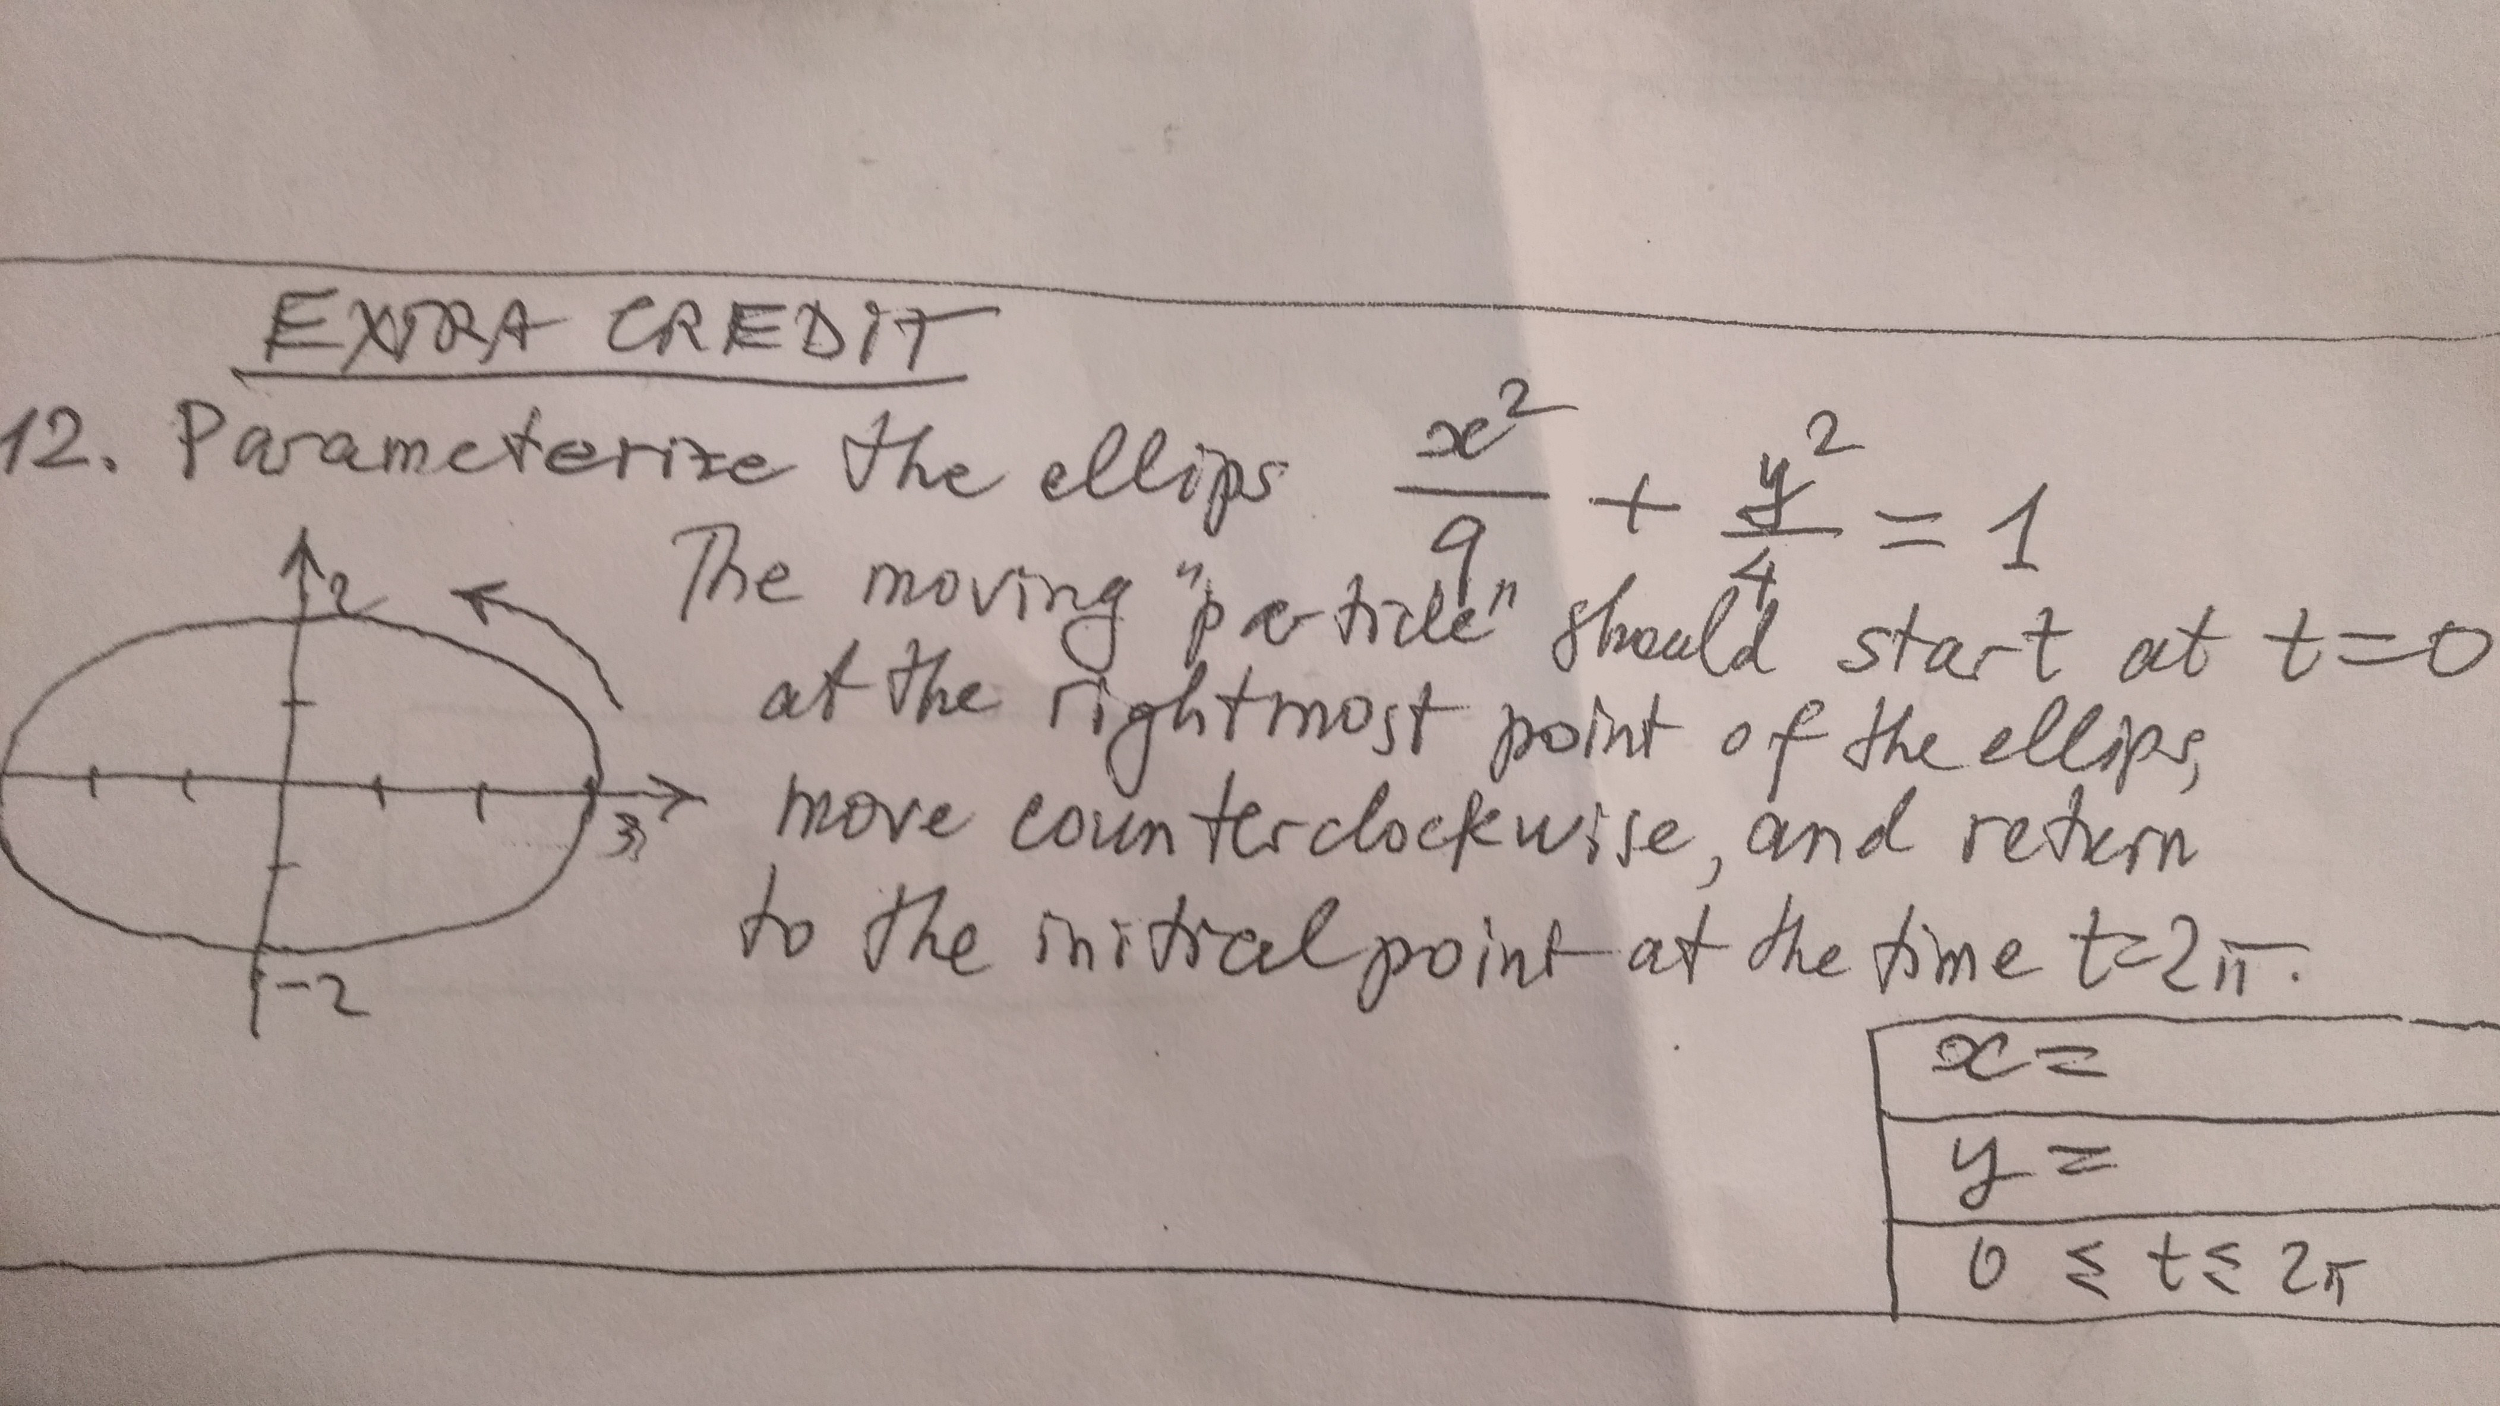 EXTRA CREDIT
12. Parameterize the ellips x²/9 + y²/4 = 1
The moving "particle" should start at t=0
at the rightmost point of the ellips,
move counterclockwise, and return
to the initial point at the time t=2π.
2
3
-2
x=
y=
0 ≤ t ≤ 2π